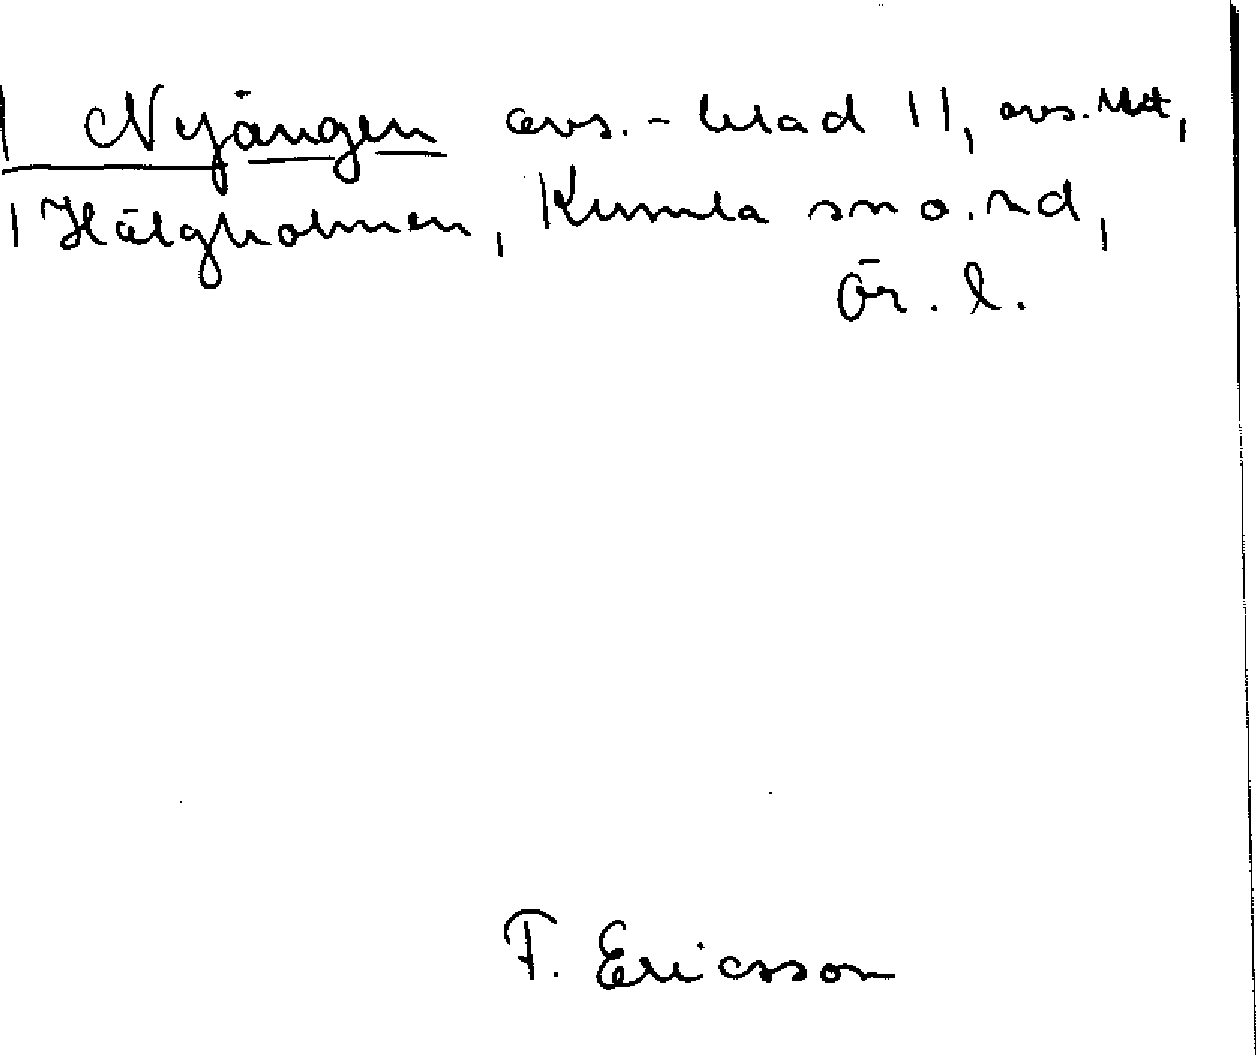 Nyängen avs.-blad 11, avs.
Hälgholmen, Kumla sn o. hd,
Ör. l.
F. Ericsson